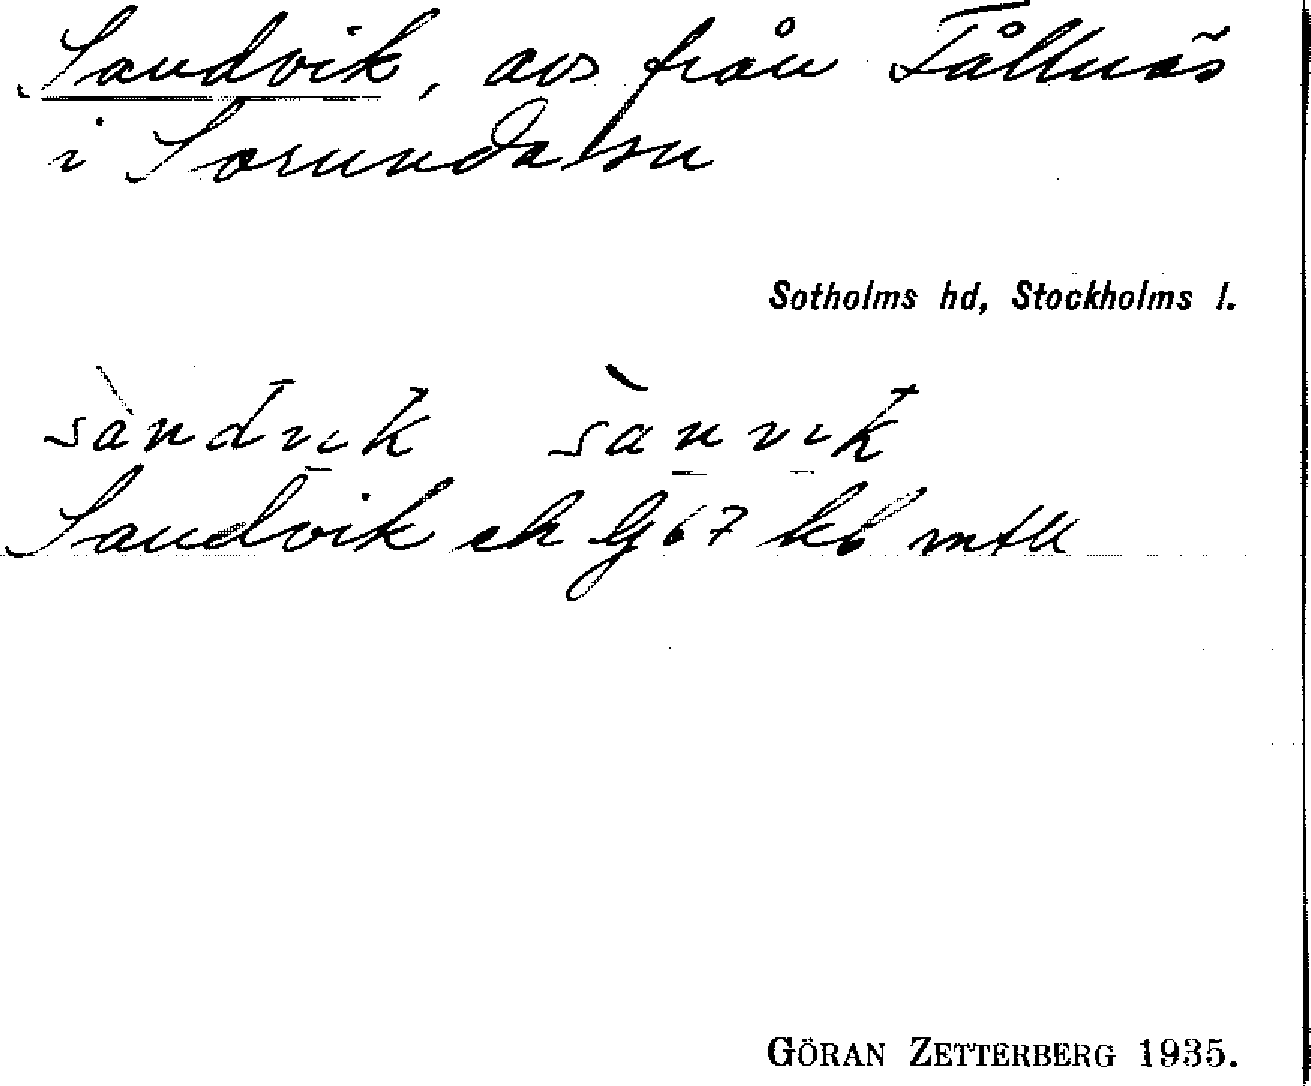 Sandvik, avs från Fållnäs
i Sorunda sn
Sotholms hd, Stockholms l.
sàndvik sànvik
Sandvik ek G 67 kb mtl
GÖRAN ZETTERBERG 1935.